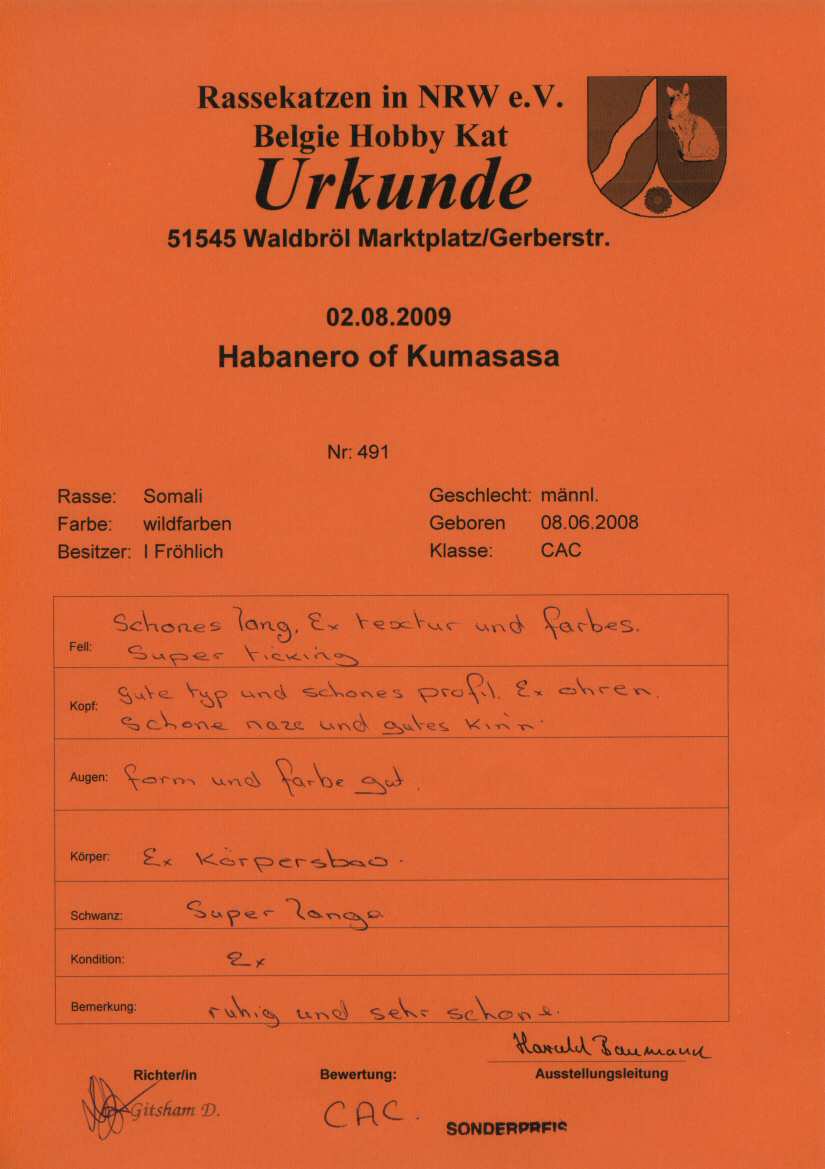 Rassekatzen in NRW e.V.
Belgie Hobby Kat
Urkunde
51545 Waldbröl Marktplatz/Gerberstr.
02.08.2009
Habanero of Kumasasa
Nr: 491
Rasse: Somali Geschlecht: männl.
Farbe: wildfarben Geboren 08.06.2008
Besitzer: I Fröhlich Klasse: CAC
Fell: Schones lang, Ex textur und farbes.
Super ticking
Kopf: gute typ und schones profil. Ex ohren.
Schone naze und gutes kinn.
Augen: form und farbe gut.
Körper: Ex Körpersbao.
Schwanz: Super lange
Kondition: Ex
Bemerkung: ruhig und sehr schone.
Harald Baumann
Richter/in Bewertung: Ausstellungsleitung
Gitsham D. CAC.
SONDERPREIS